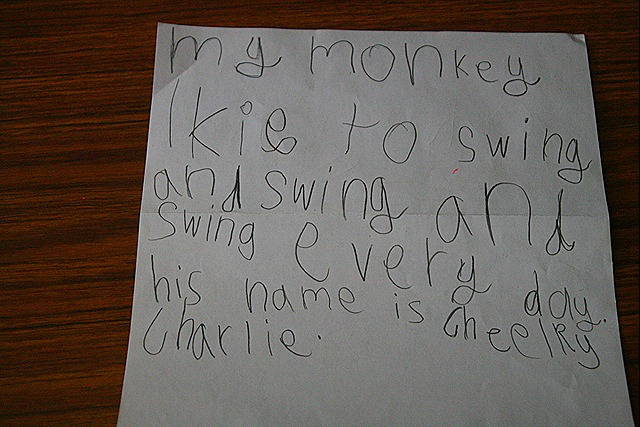 my monkey
lkie to swing
and swing and
swing every day.
his name is Cheelky
Charlie.